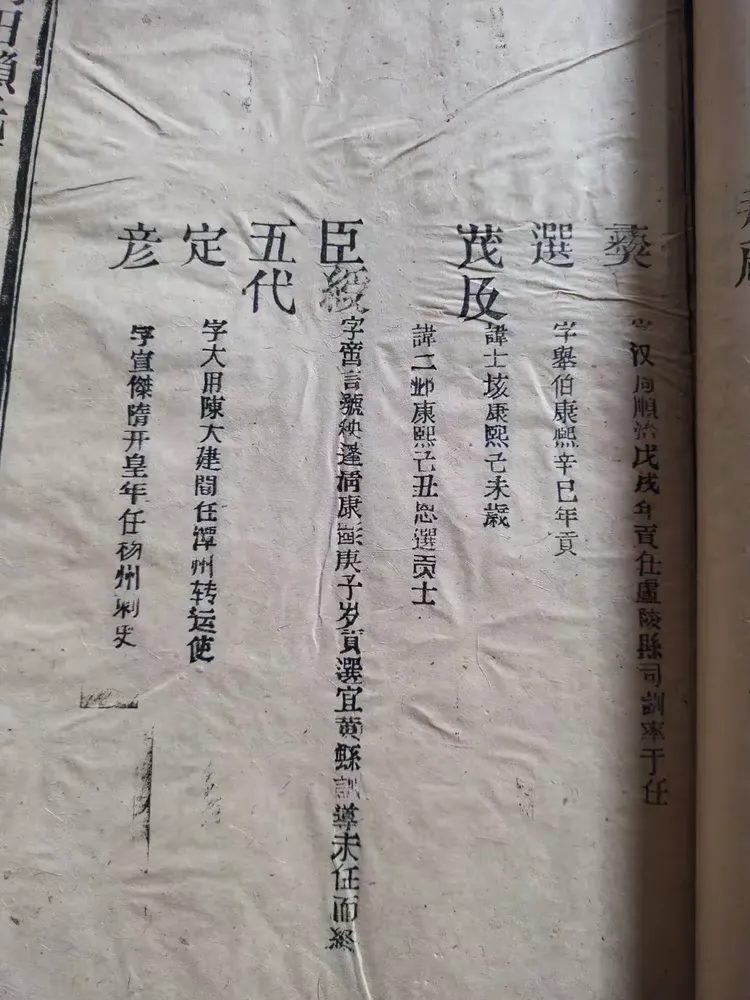 字汉周順治戊戌年貢仕盧陵縣司訓率于任
選
字舉伯康熙辛巳年貢
茂及
諱士垓康熙己未歲
諱二邺康熙乙丑恩選贡士
臣綬
字言號秧蓬清康熙庚子岁貢選宜黄縣訓導未任而終
五代
定
字大用陳大建間任潭州转运使
彦
字宣傑隋开皇年任杨州刺史
田賴